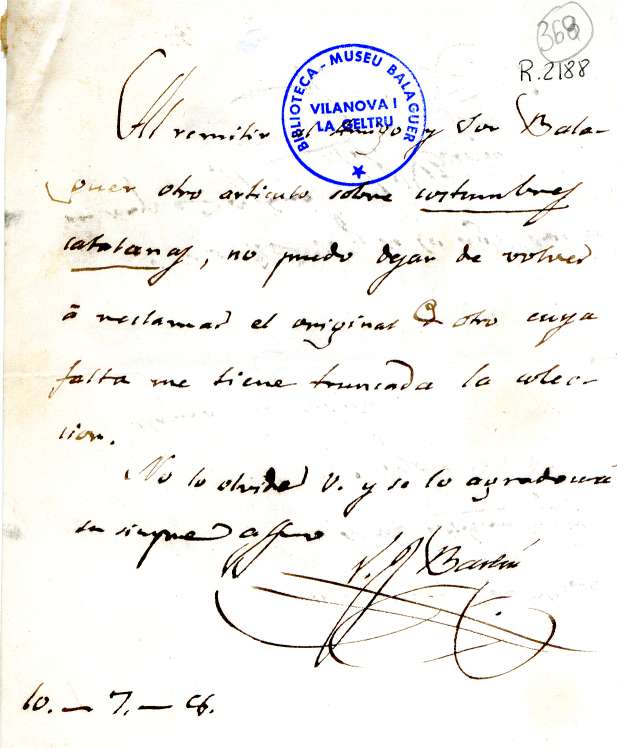 368
R.2188
BIBLIOTECA - MUSEU BALAGUER
VILANOVA I
LA GELTRU
Al remitir al amigo y Sor Bala-
guer otro articulo sobre costumbres
catalanas, no puedo dejar de volver
á reclamar el original de otro cuya
falta me tiene truncada la colec-
cion.
No lo olvide V. y se lo agradecerá
su siempre affmo
10. — 7. —